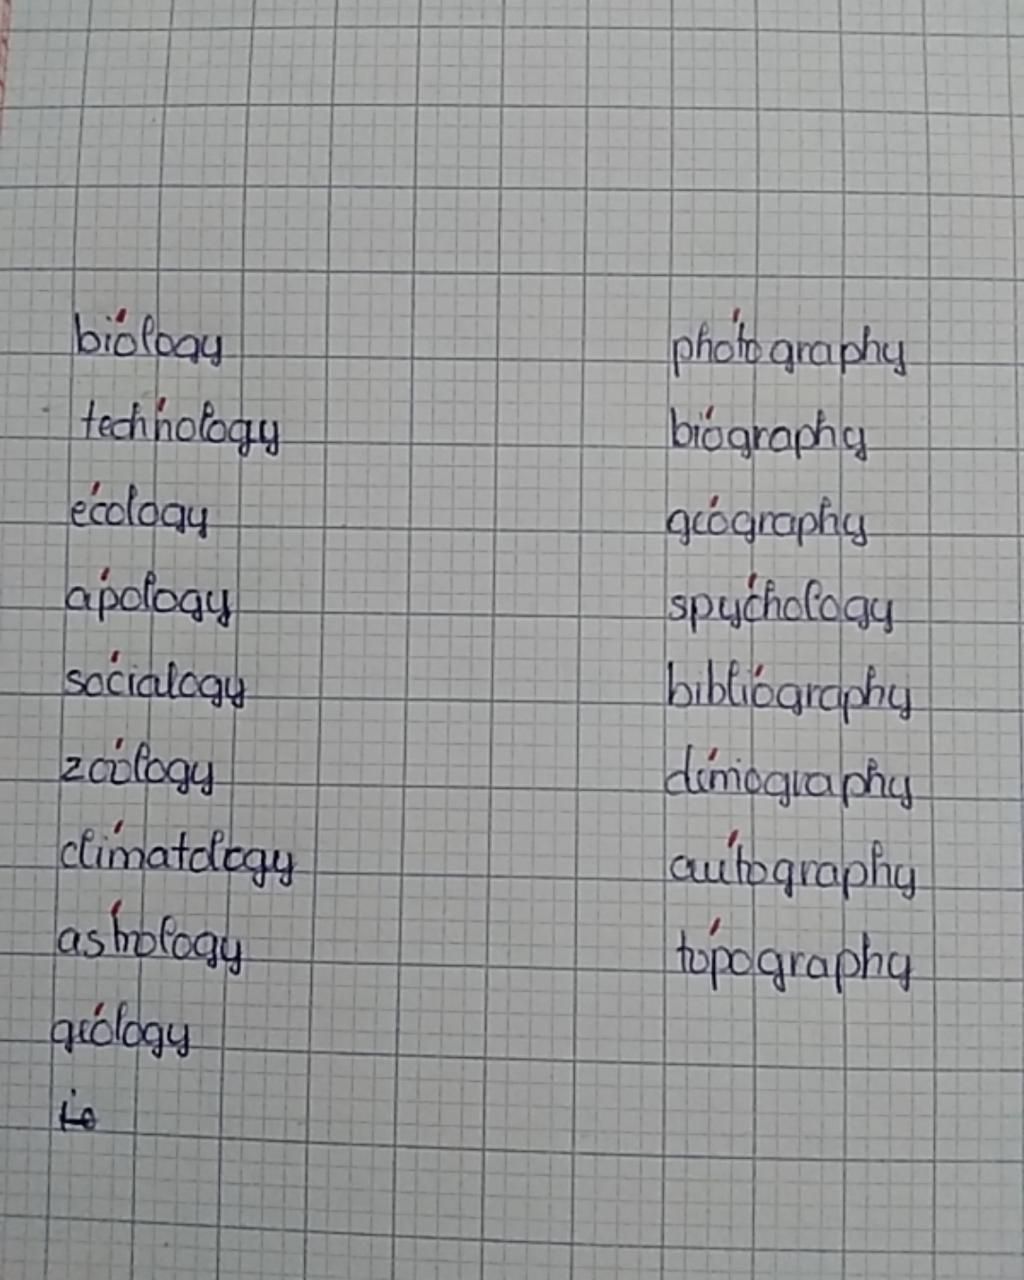 biology
technology
ecology
apology
socialogy
zoology
climatology
astrology
geology
photography
biography
geography
spychology
bibliography
demography
autography
topography